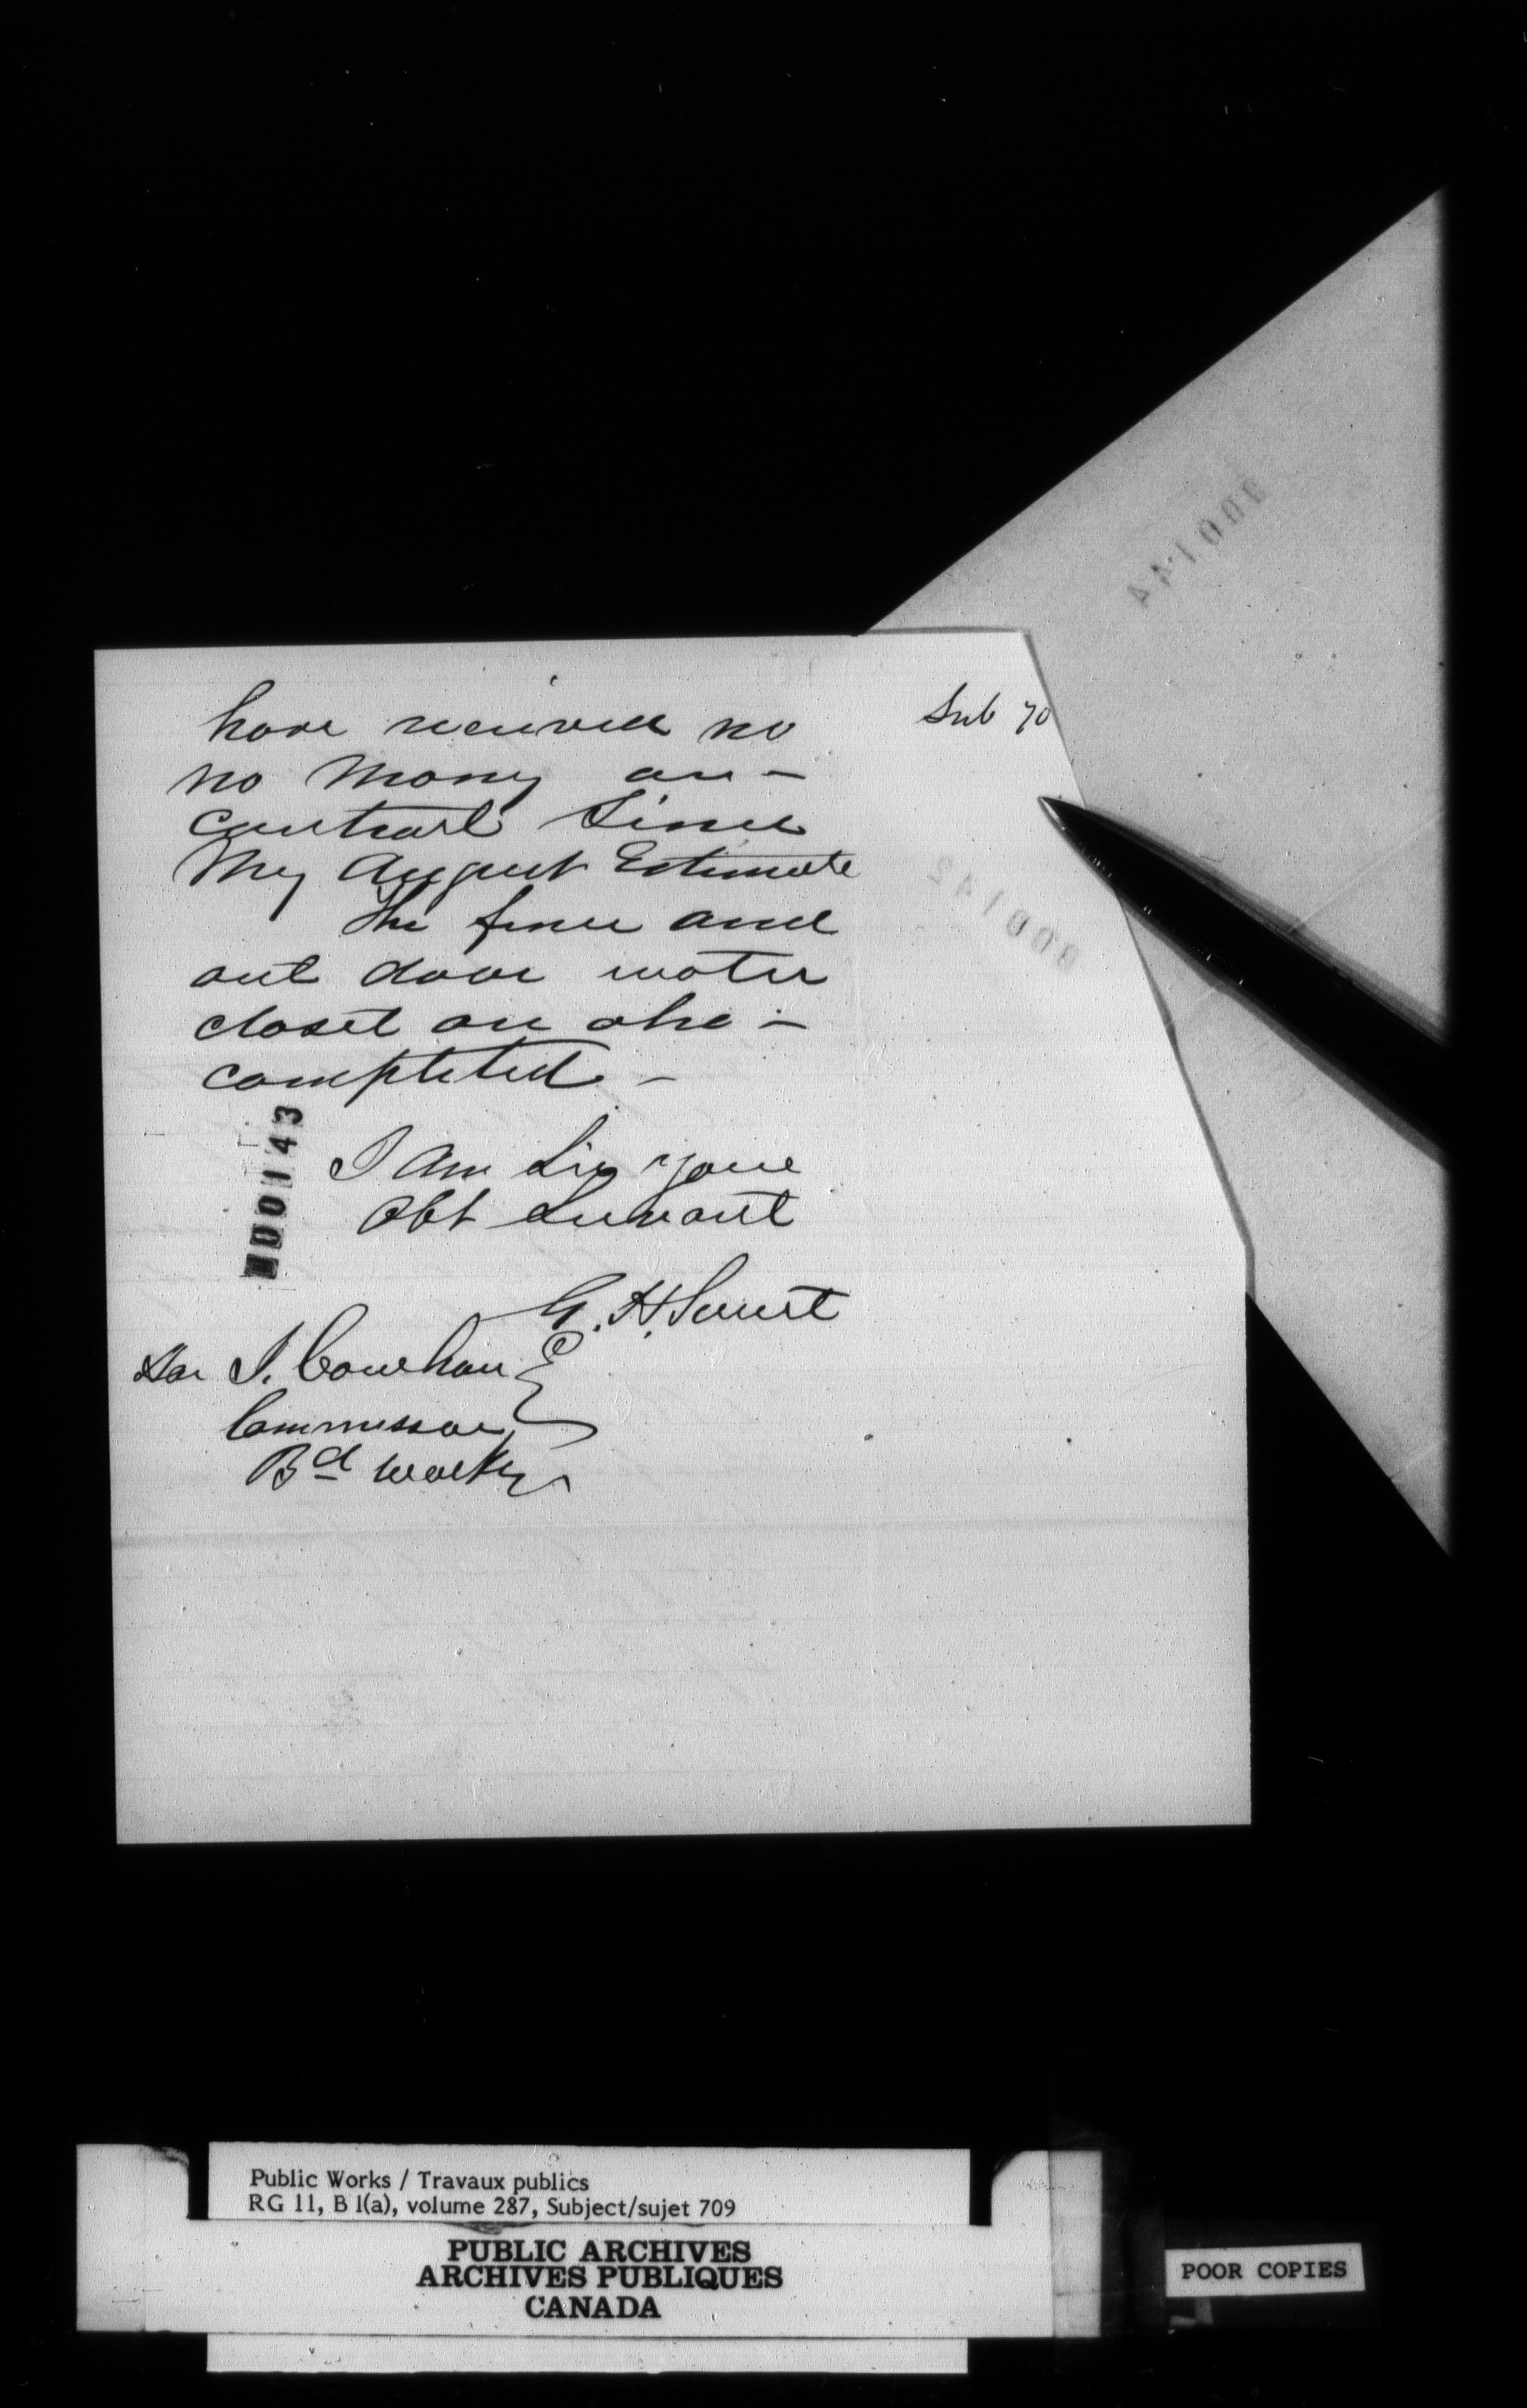 Sub 70
have received no
no Mony on -
contract Since
My August Estimate
The fence and
out door water
closet are also -
completed -
I am Sir your
Obt Servant
G. H.
Hon J.
Commissor
Bd Works
000143
000144
000142
Public Works / Travaux publics
RG 11, B 1(a), volume 287, Subject/sujet 709
PUBLIC ARCHIVES
ARCHIVES PUBLIQUES
CANADA
POOR COPIES